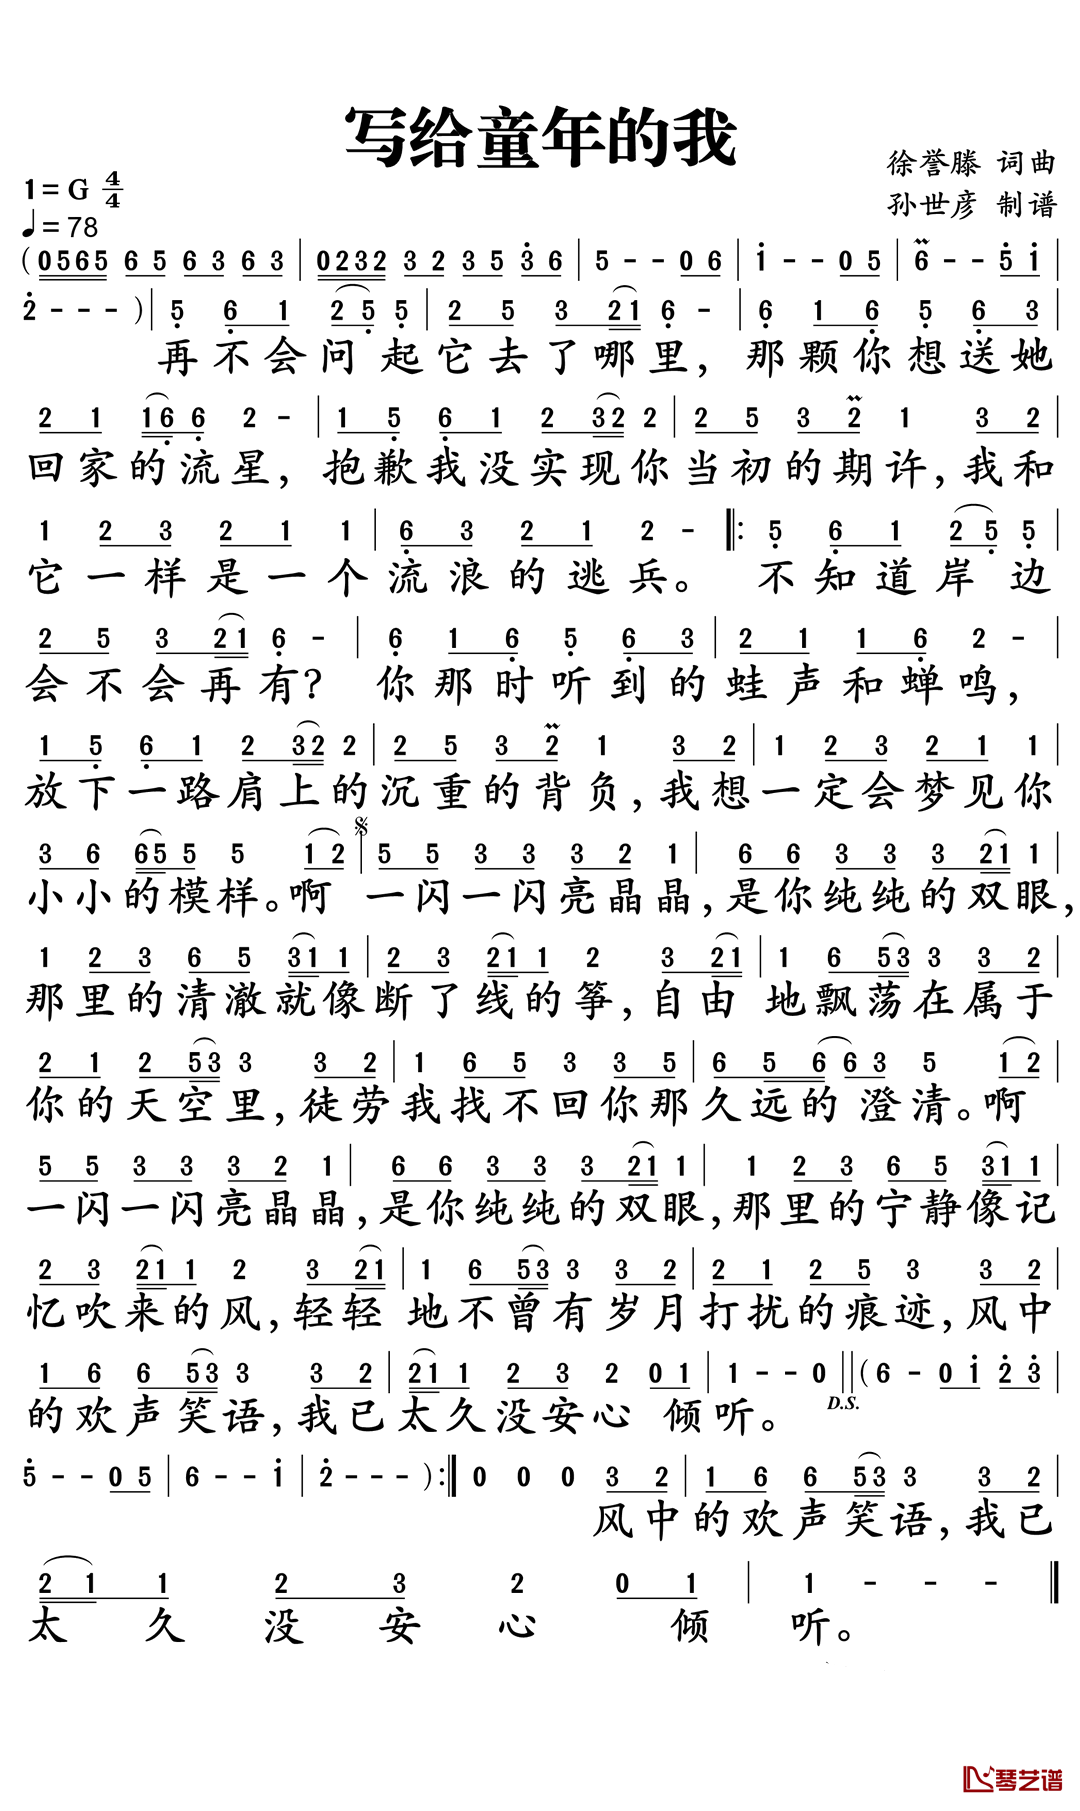 写给童年的我
徐誉滕 词曲
1=G 4/4
孙世彦 制谱
♩=78
(0565 65 63 63 | 0232 32 35 36 | 5 - - 06 | 1 - - 05 | 6 - - 51 |
2 - - -) | 5 61 25 5 | 25 321 6 - | 6 16 5 63 |
再不会问起它去了哪里，那颗你想送她
21 166 2 - | 15 61 2322 | 25 32 1 32 |
回家的流星，抱歉我没实现你当初的期许，我和
1 23 21 1 | 63 21 2 - ‖: 5 61 25 5 |
它一样是一个流浪的逃兵。不知道岸边
25 321 6 - | 6 16 5 63 | 21 16 2 - |
会不会再有？你那时听到的蛙声和蝉鸣，
15 61 2322 | 25 32 1 32 | 1 23 21 1 |
放下一路肩上的沉重的背负，我想一定会梦见你
36 655 5 12 | 55 33 32 1 | 66 33 321 1 |
小小的模样。啊 一闪一闪亮晶晶，是你纯纯的双眼，
1 23 65 311 | 23 211 2 321 | 1 653 3 32 |
那里的清澈就像断了线的筝，自由 地飘荡在属于
21 253 3 32 | 1 65 3 35 | 656 63 5 12 |
你的天空里，徒劳我找不回你那久远的 澄清。啊
55 33 32 1 | 66 33 321 1 | 1 23 65 311 |
一闪一闪亮晶晶，是你纯纯的双眼，那里的宁静像记
23 211 2 321 | 1 653 3 32 | 21 25 3 32 |
忆吹来的风，轻轻 地不曾有岁月打扰的痕迹，风中
16 653 3 32 | 211 23 2 01 | 1 - - 0 ‖ (6 - 01 23 |
D.S.
的欢声笑语，我已太久没安心 倾听。
5 - - 05 | 6 - - 1 | 2 - - -) :‖ 0 0 0 32 | 16 653 3 32 |
风中的欢声笑语，我已
211 23 2 01 | 1 - - - ‖
太久没安心倾听。
琴艺谱